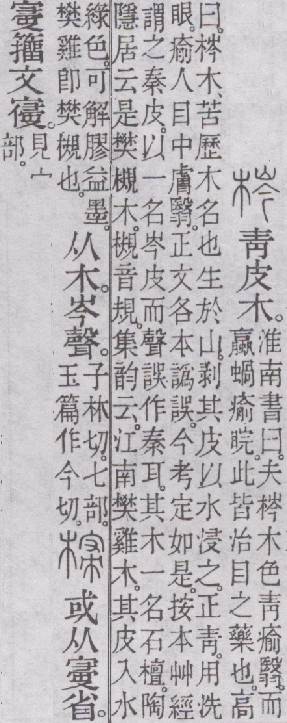 梣
靑皮木。
淮南書曰。夫梣木色靑瘉翳。而
蠃蝸瘉睆。此皆治目之藥也。高
曰。梣木。苦歷木名也。生於山。剥其皮以水浸之。正靑。用洗
眼。瘉人目中膚翳。正文各本譌誤。今考定如是。按本艸經
謂之秦皮。以一名岑皮而聲誤作秦耳。其木一名石檀。陶
隱居云。是樊槻木。槻音規。集韵云。江南樊雞木。其皮入水
綠色。可解膠益墨。
樊雞卽樊槻也。
从木。岑聲。
子林切。七部。
玉篇作今切。
或从𡪢省。
𡪢籒文𡪢。
見宀
部。